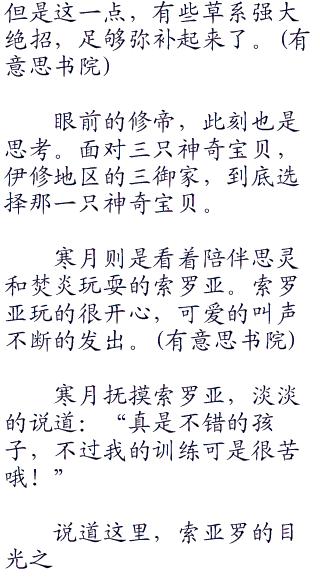 但是这一点，有些草系强大
绝招，足够弥补起来了。(有
意思书院)
眼前的修帝，此刻也是
思考。面对三只神奇宝贝，
伊修地区的三御家，到底选
择那一只神奇宝贝。
寒月则是看着陪伴思灵
和焚炎玩耍的索罗亚。索罗
亚玩的很开心，可爱的叫声
不断的发出。(有意思书院)
寒月抚摸索罗亚，淡淡
的说道：“真是不错的孩
子，不过我的训练可是很苦
哦！”
说道这里，索亚罗的目
光之